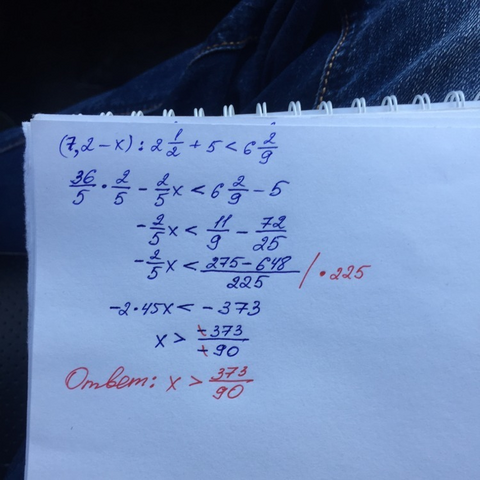 (7,2-x):2 1/2 + 5 < 6 2/9
36/5 · 2/5 - 2/5 x < 6 2/9 - 5
-2/5 x < 11/9 - 72/25
-2/5 x < (275-648)/225 / · 225
-2·45x < -373
x > -373/-90
Ответ: x > 373/90